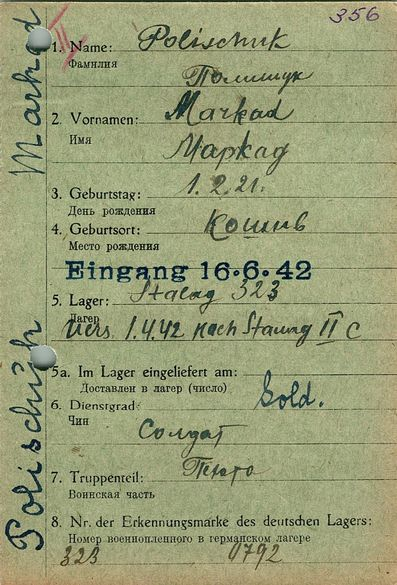 356
II
1. Name: Polischuk
Фамилия
Полищук
2. Vornamen: Markad
Имя
Маркад
3. Geburtstag: 1.2.21.
День рождения
4. Geburtsort: Кошив
Место рождения
Eingang 16.6.42
5. Lager: Stalag 323
Лагерь
Vers. 1.4.42 nach Stalag II C
5a. Im Lager eingeliefert am:
Доставлен в лагер (число)
6. Dienstgrad: Sold.
Чин
Солдат
7. Truppenteil: Пехто
Воинская часть
8. Nr. der Erkennungsmarke des deutschen Lagers:
Номер военнопленного в германском лагере
323 0792
Polischuk Markad